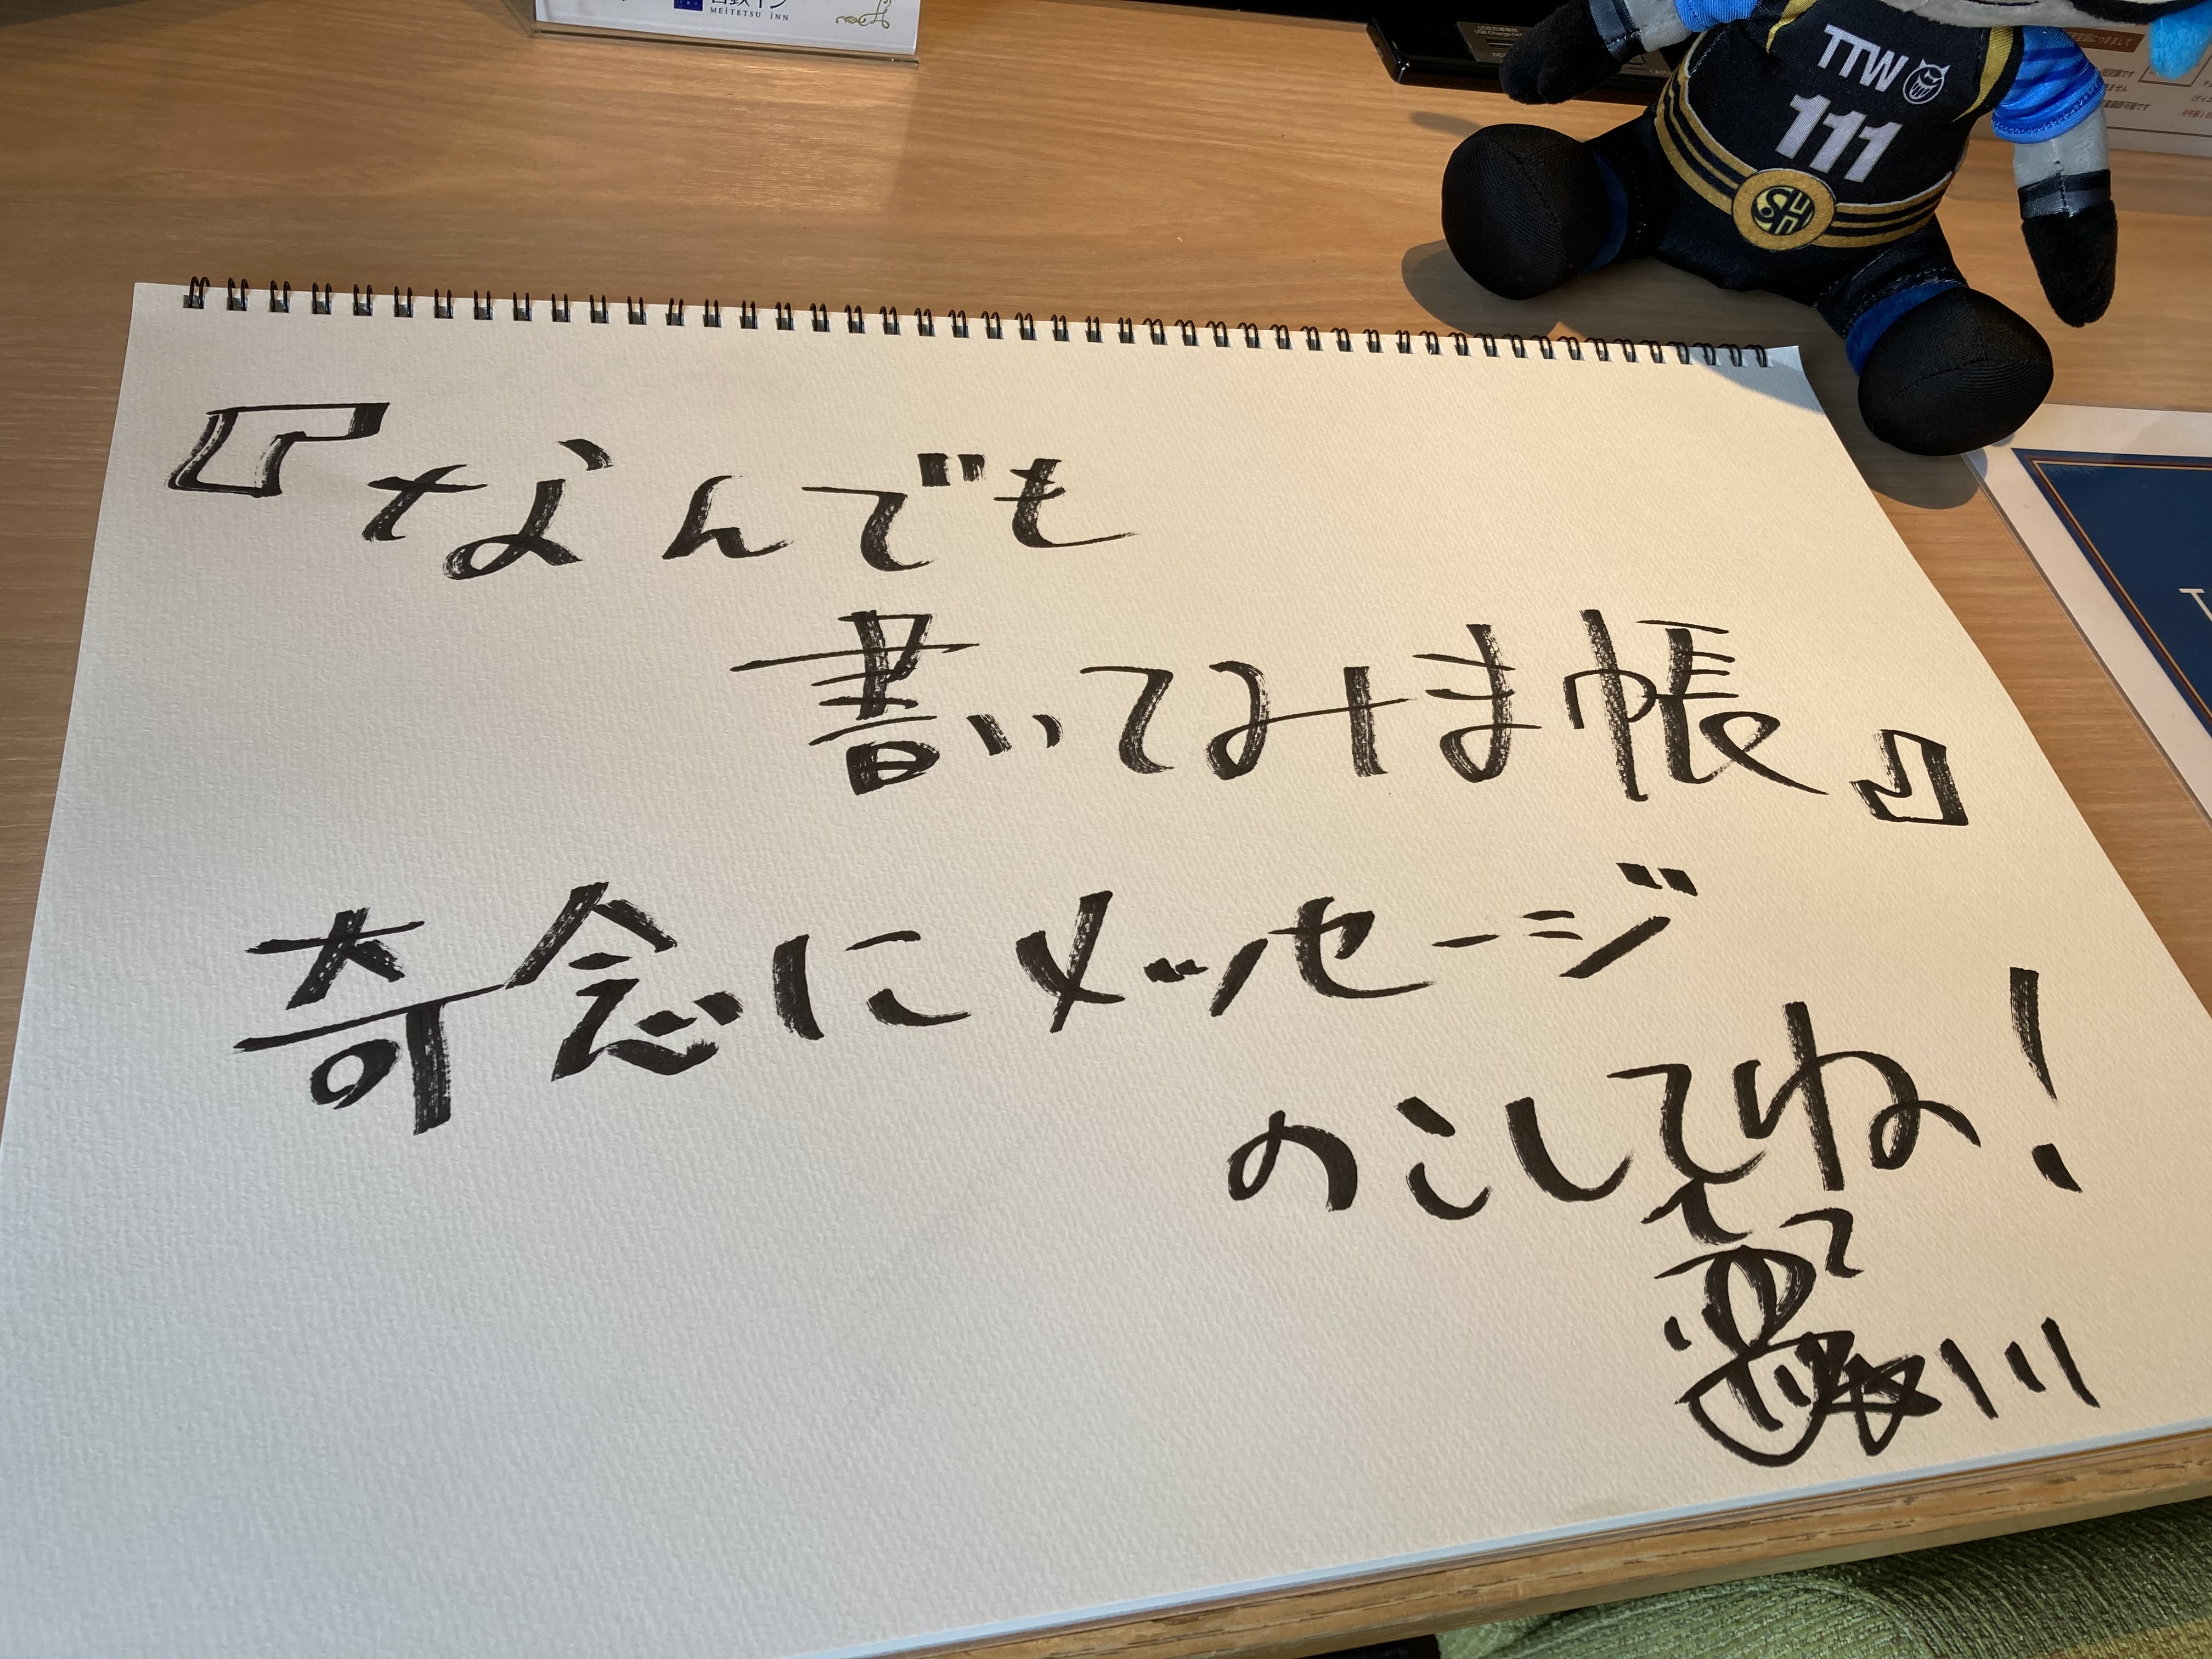 名鉄イン
MEITETSU INN
TTW
111
SUN
『なんでも
書いてみま帳』
奇念にメッセージ
のこしてね!